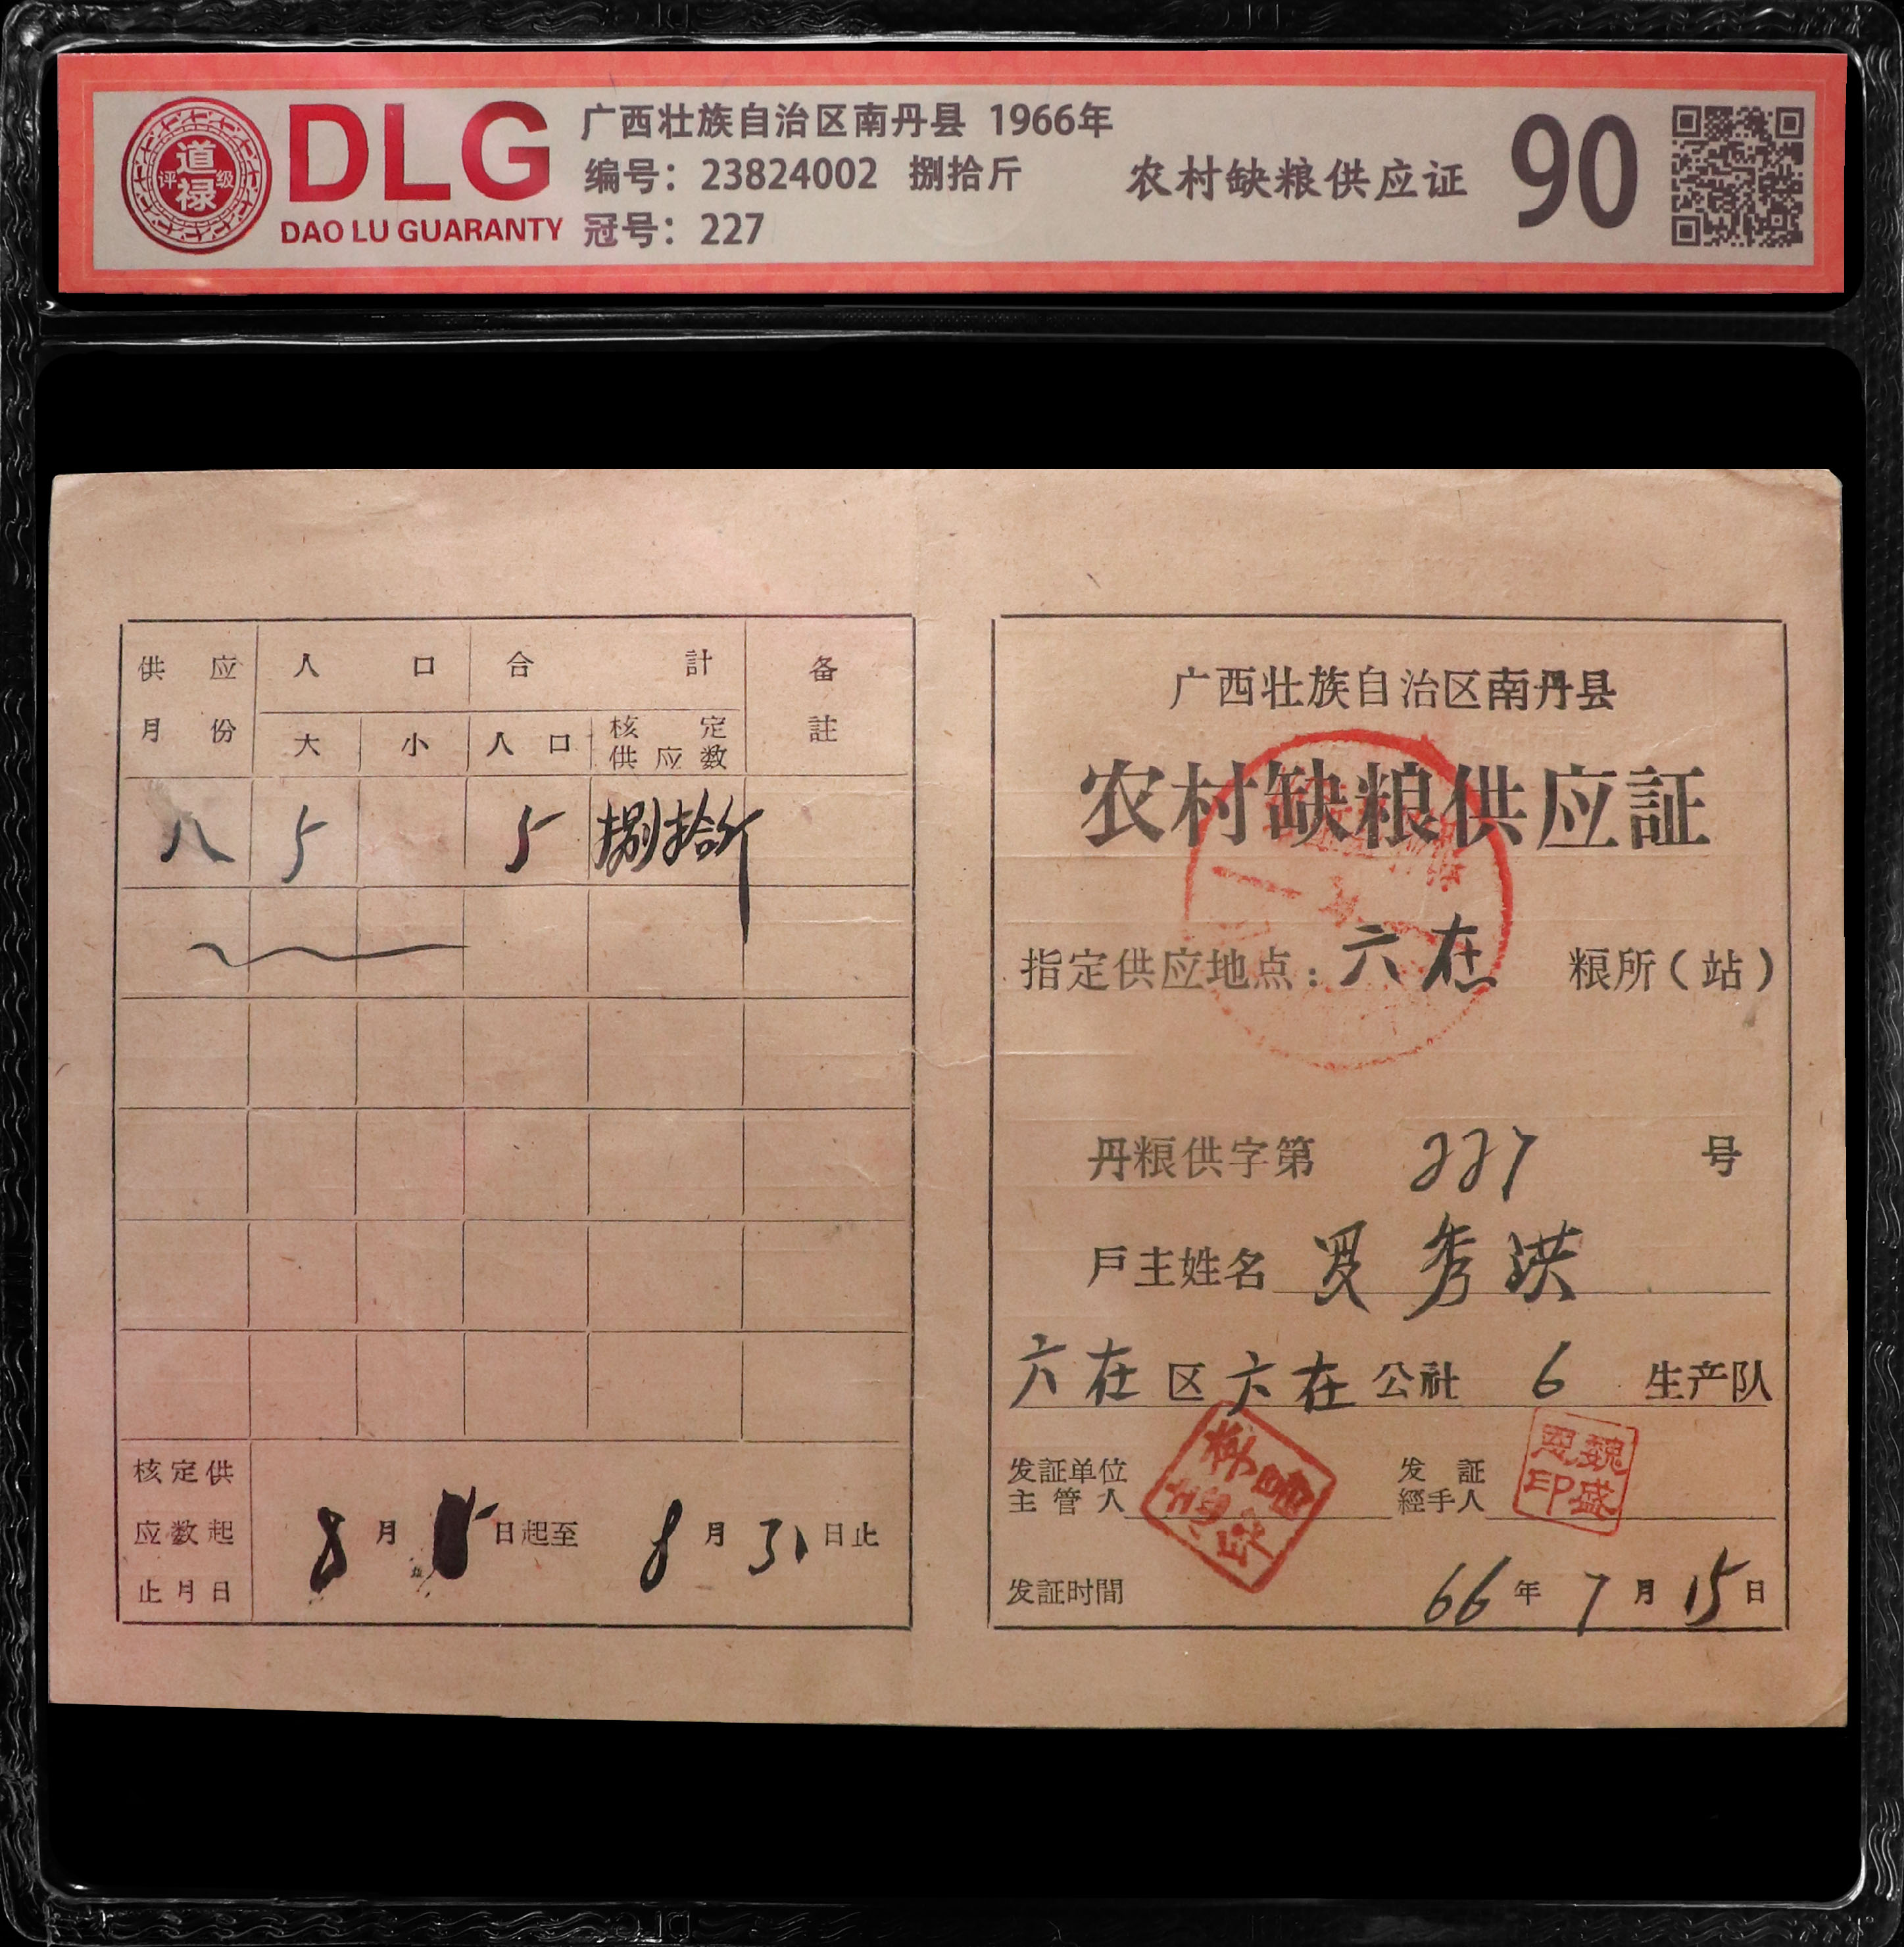 道禄
评级
DLG
DAO LU GUARANTY
广西壮族自治区南丹县 1966年
编号：23824002 捌拾斤
冠号：227
农村缺粮供应证
90
供应月份 人口 合計 备註
大 小 人口 核定供应数
八 5 5 捌拾斤
核定供应数起止月日
8月 日起至 8月31日止
广西壮族自治区南丹县
农村缺粮供应証
指定供应地点：六在 粮所（站）
丹粮供字第 227 号
戶主姓名 罗秀洪
六在区六在公社 6 生产队
发証单位主管人
发証經手人 魏盛恩印
发証时間 66年7月15日